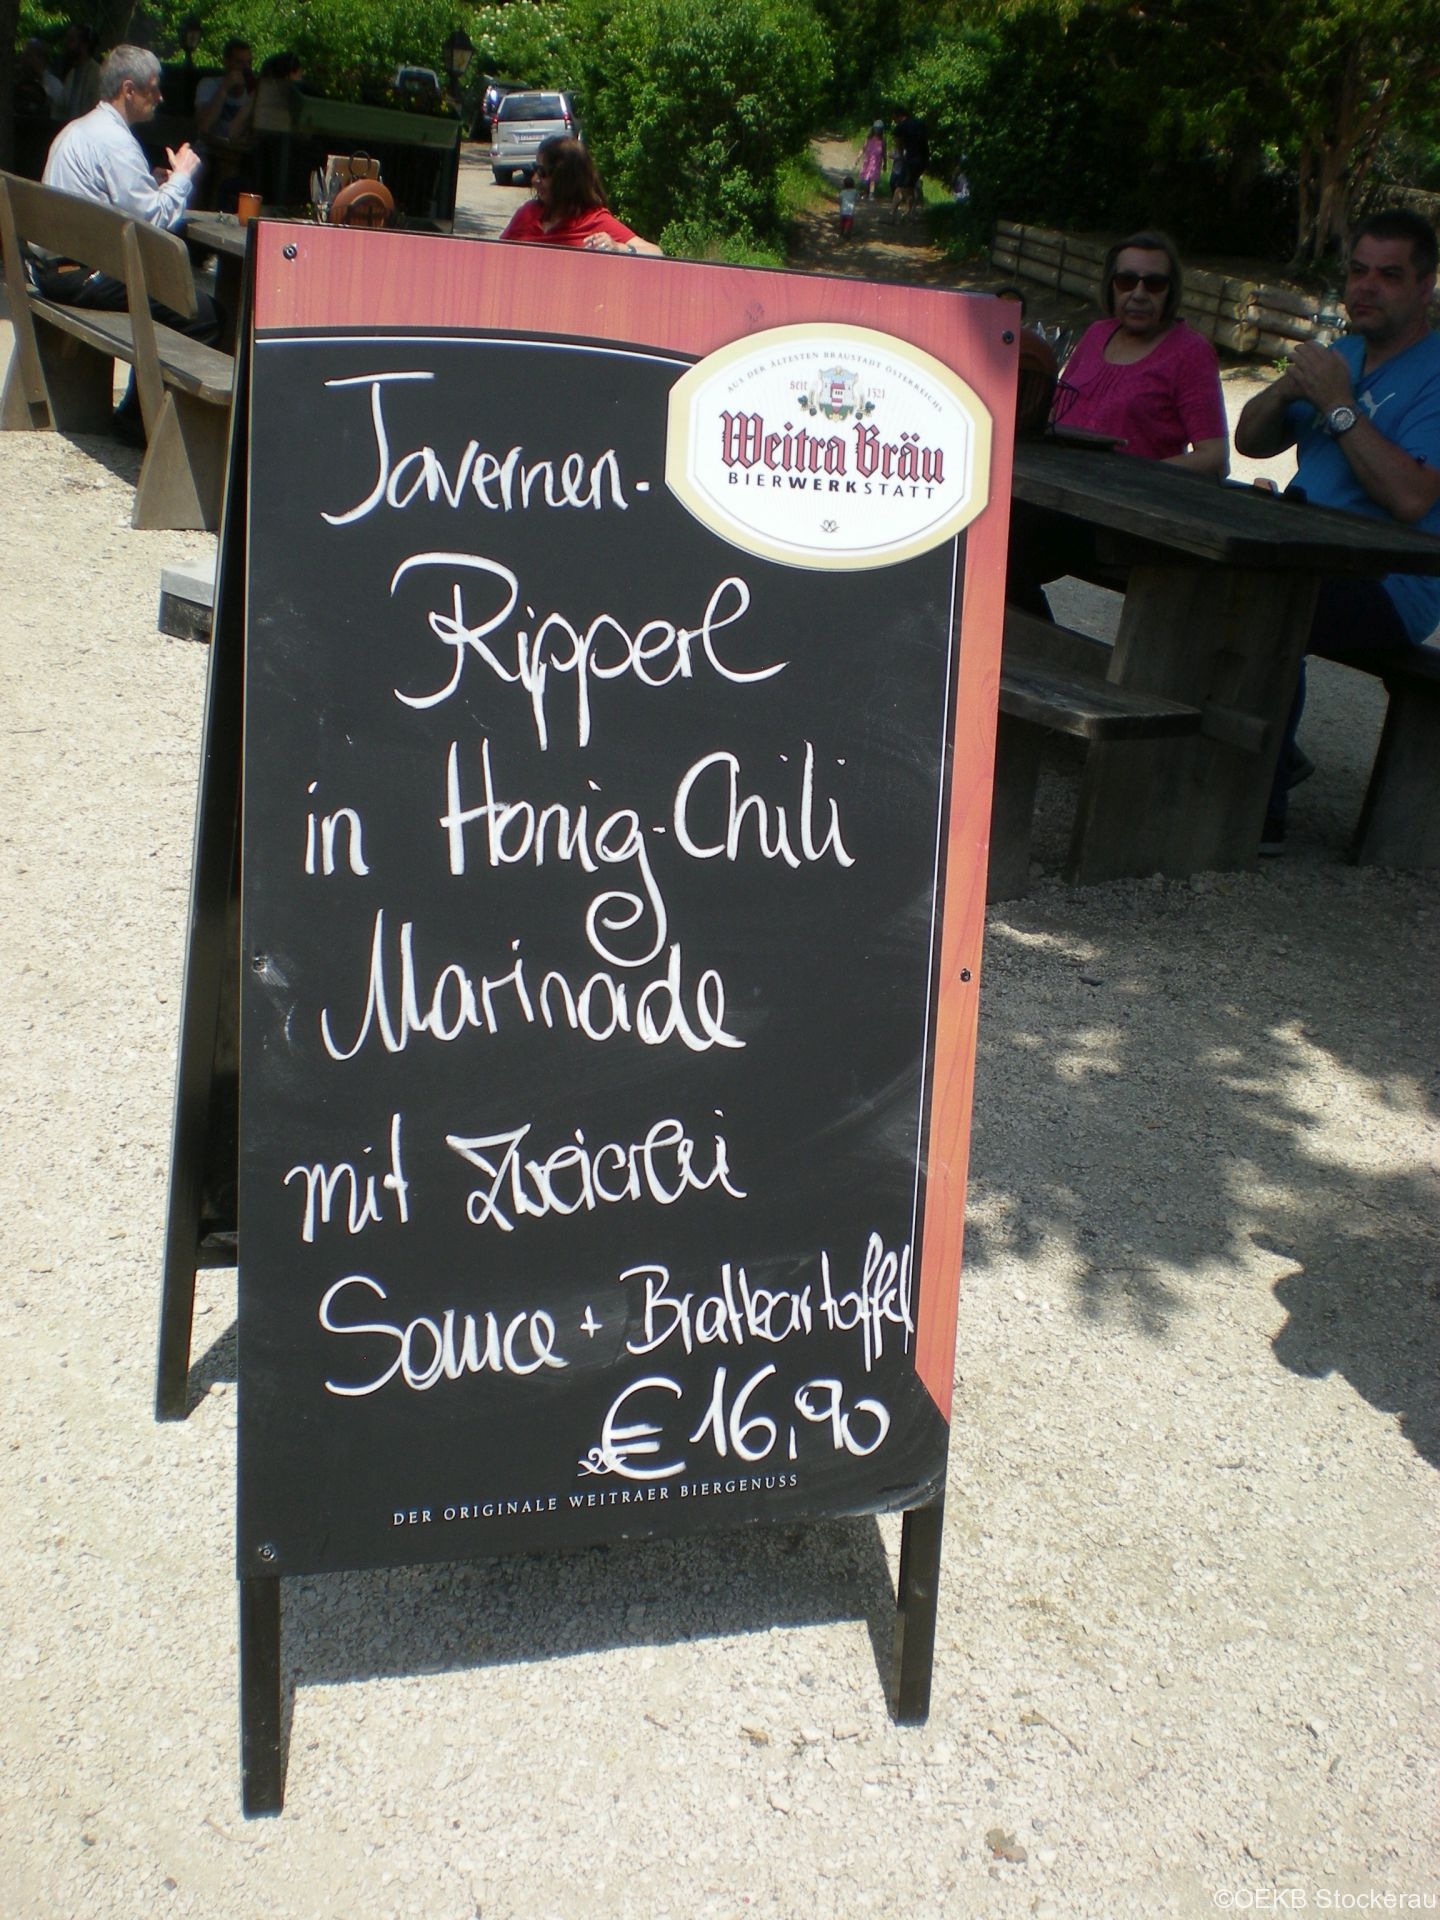 AUS DER ÄLTESTEN BRAUSTADT ÖSTERREICHS
seit 1321
Weitra Bräu
BIERWERKSTATT
Tavernen-
Ripperl
in Honig-Chili
Marinade
mit Zweierlei
Sauce + Bratkartoffel
€ 16,90
DER ORIGINALE WEITRAER BIERGENUSS
©OEKB Stockerau